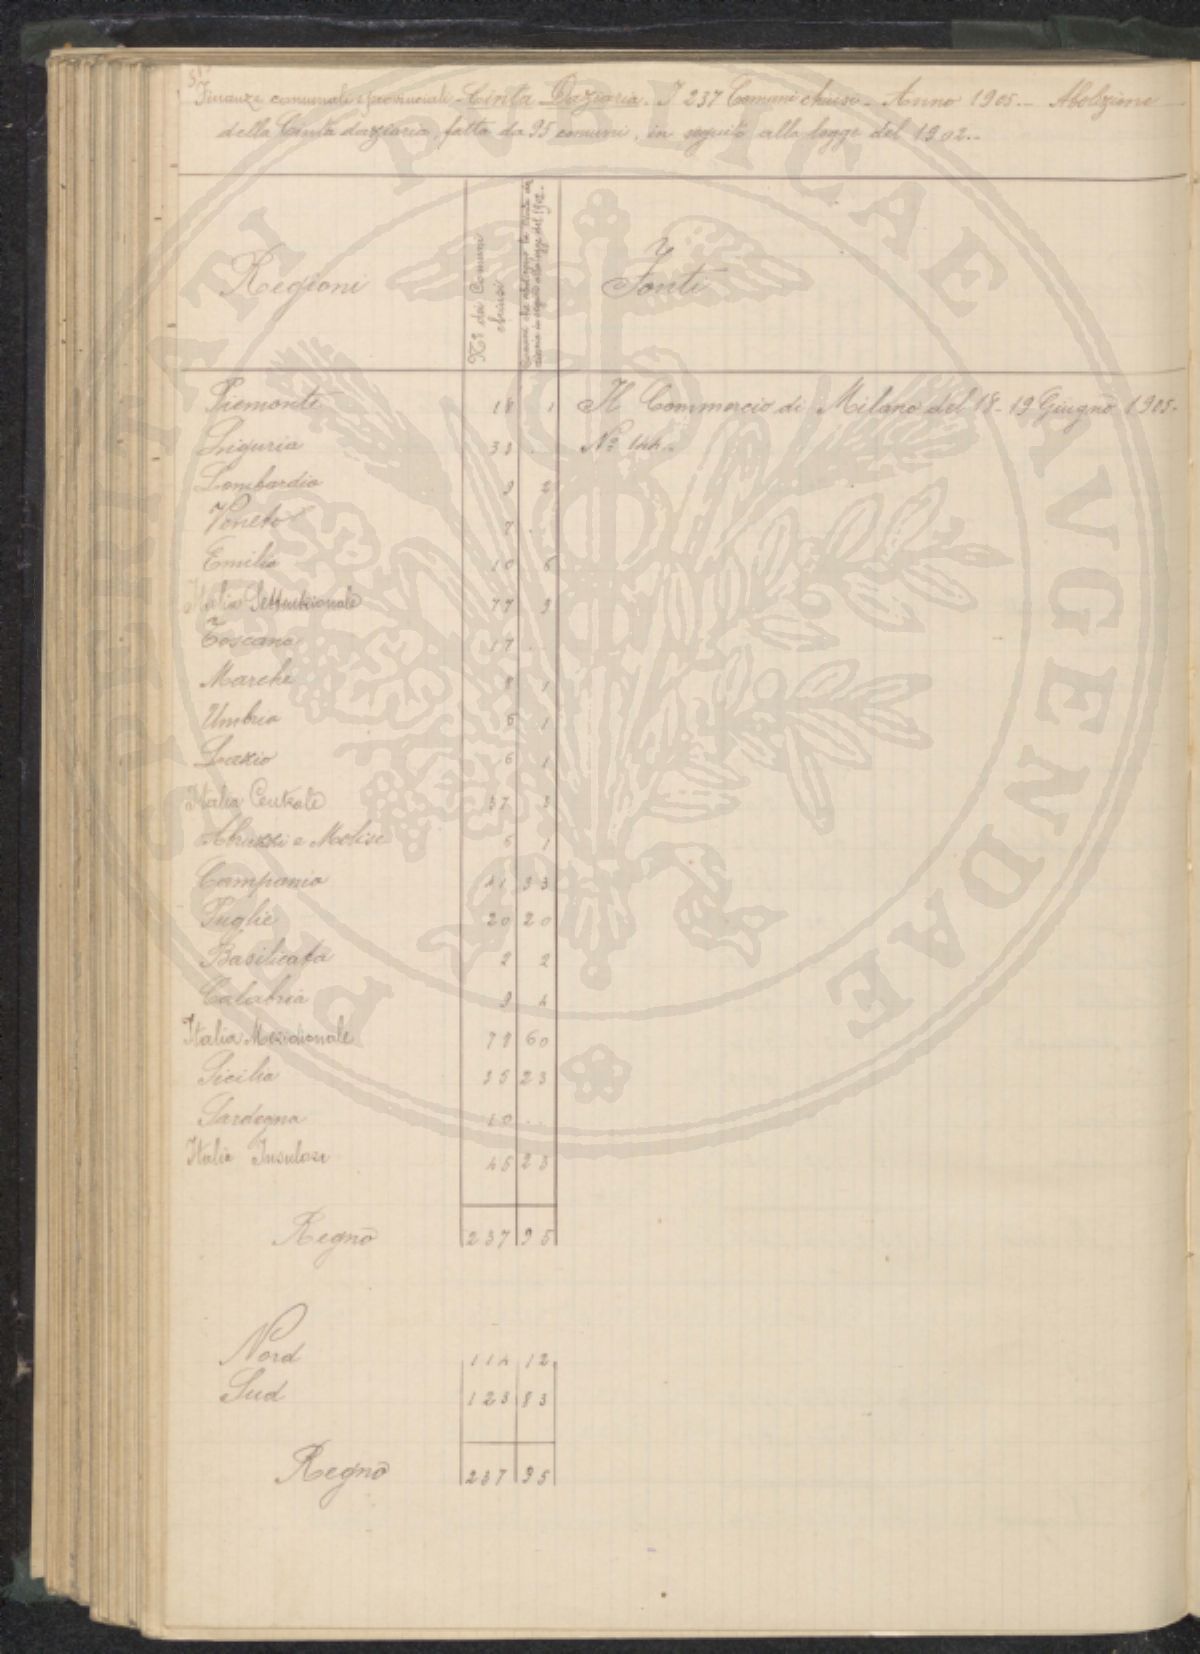 Finanze comunali e provinciali - Cinta Daziaria. I 237 Comuni chiusi - Anno 1905. - Abolizione
della Cinta daziaria, fatta da 95 comuni, in seguito alla legge del 1902. -
Regioni
N° dei Comuni chiusi
Comuni che abolirono la cinta daziaria in seguito alla legge del 1902.
Fonti
Piemonte 18 1 Il Commercio di Milano del 18-19 Giugno 1905.
Liguria 33 .. N° 144. -
Lombardia 9 2
Veneto 7 ..
Emilia 10 6
Italia Settentrionale 77 9
Toscana 17 ..
Marche 8 1
Umbria 6 1
Lazio 6 1
Italia Centrale 37 3
Abruzzi e Molise 6 1
Campania 41 33
Puglie 20 20
Basilicata 2 2
Calabria 9 4
Italia Meridionale 78 60
Sicilia 35 23
Sardegna 10 ..
Italia Insulare 45 23
Regno 237 95
Nord 114 12
Sud 123 83
Regno 237 95
PROSPERITATI PVBLICAE AVGENDAE